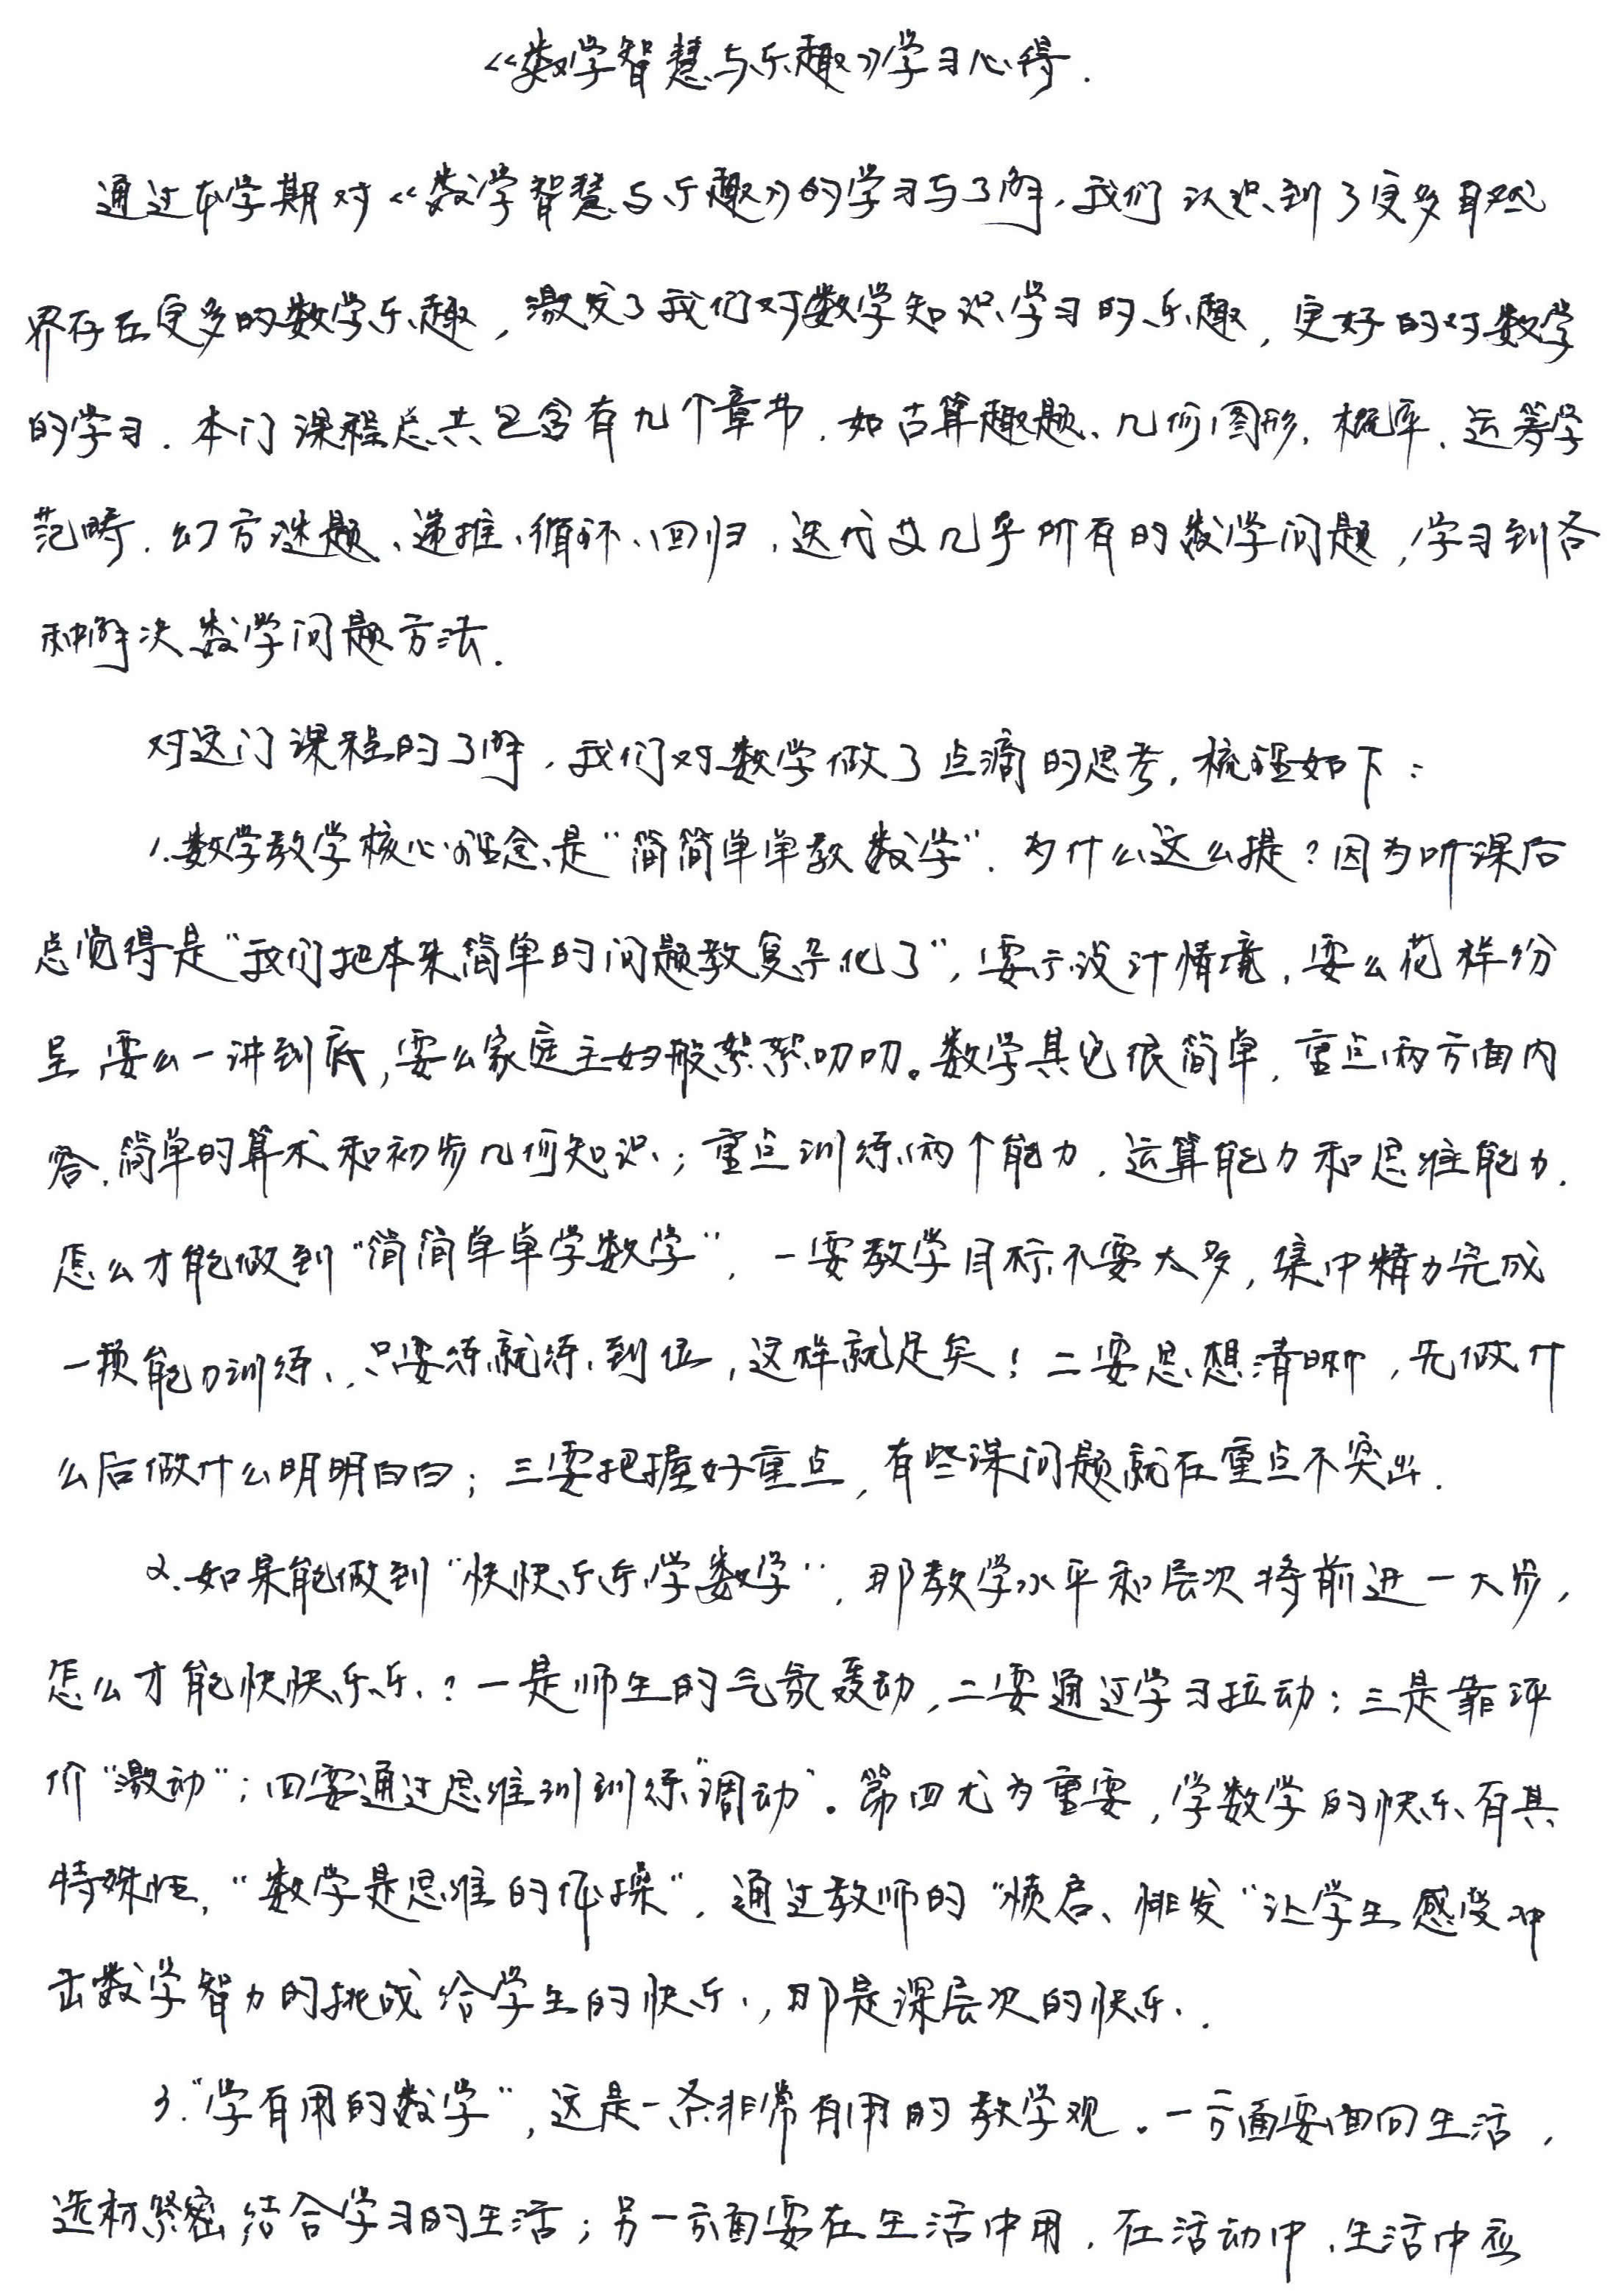 《数学智慧与乐趣》学习心得.
通过本学期对《数学智慧与乐趣》的学习与了解,我们认识到了更多自然
界存在更多的数学乐趣,激发了我们对数学知识学习的乐趣,更好的对数学
的学习.本门课程总共包含有九个章节,如古算趣题、几何图形、概率、运筹学
范畴、幻方谜题、递推、循环、回归、迭代及几乎所有的数学问题,学习到各
种解决数学问题方法.
对这门课程的了解,我们对数学做了点滴的思考,梳理如下:
1.数学教学核心理念是“简简单单教数学”.为什么这么提?因为听课后
总觉得是“我们把本来简单的问题教复杂化了”,要示设计情境,要么花样纷
呈,要么一讲到底,要么家庭主妇般絮絮叨叨。数学其它很简单,重点两方面内
容,简单的算术和初步几何知识;重点训练两个能力,运算能力和思维能力.
怎么才能做到“简简单单学数学”,一要教学目标不要太多,集中精力完成
一项能力训练,只要练就练到位,这样就足矣!二要思想清晰,先做什
么后做什么明明白白;三要把握好重点,有些课问题就在重点不突出.
2.如果能做到“快快乐乐学数学”,那教学水平和层次将前进一大步,
怎么才能快快乐乐?一是师生的气氛轰动,二要通过学习拉动;三是靠评
价“激动”;四要通过思维训训练“调动”。第四尤为重要,学数学的快乐有其
特殊性,“数学是思维的体操”,通过教师的“愤启、悱发”让学生感受冲
击数学智力的挑战给学生的快乐,那是深层次的快乐.
3.“学有用的数学”,这是一条非常有用的教学观。一方面要面向生活,
选材紧密结合学习的生活;另一方面要在生活中用,在活动中、生活中应